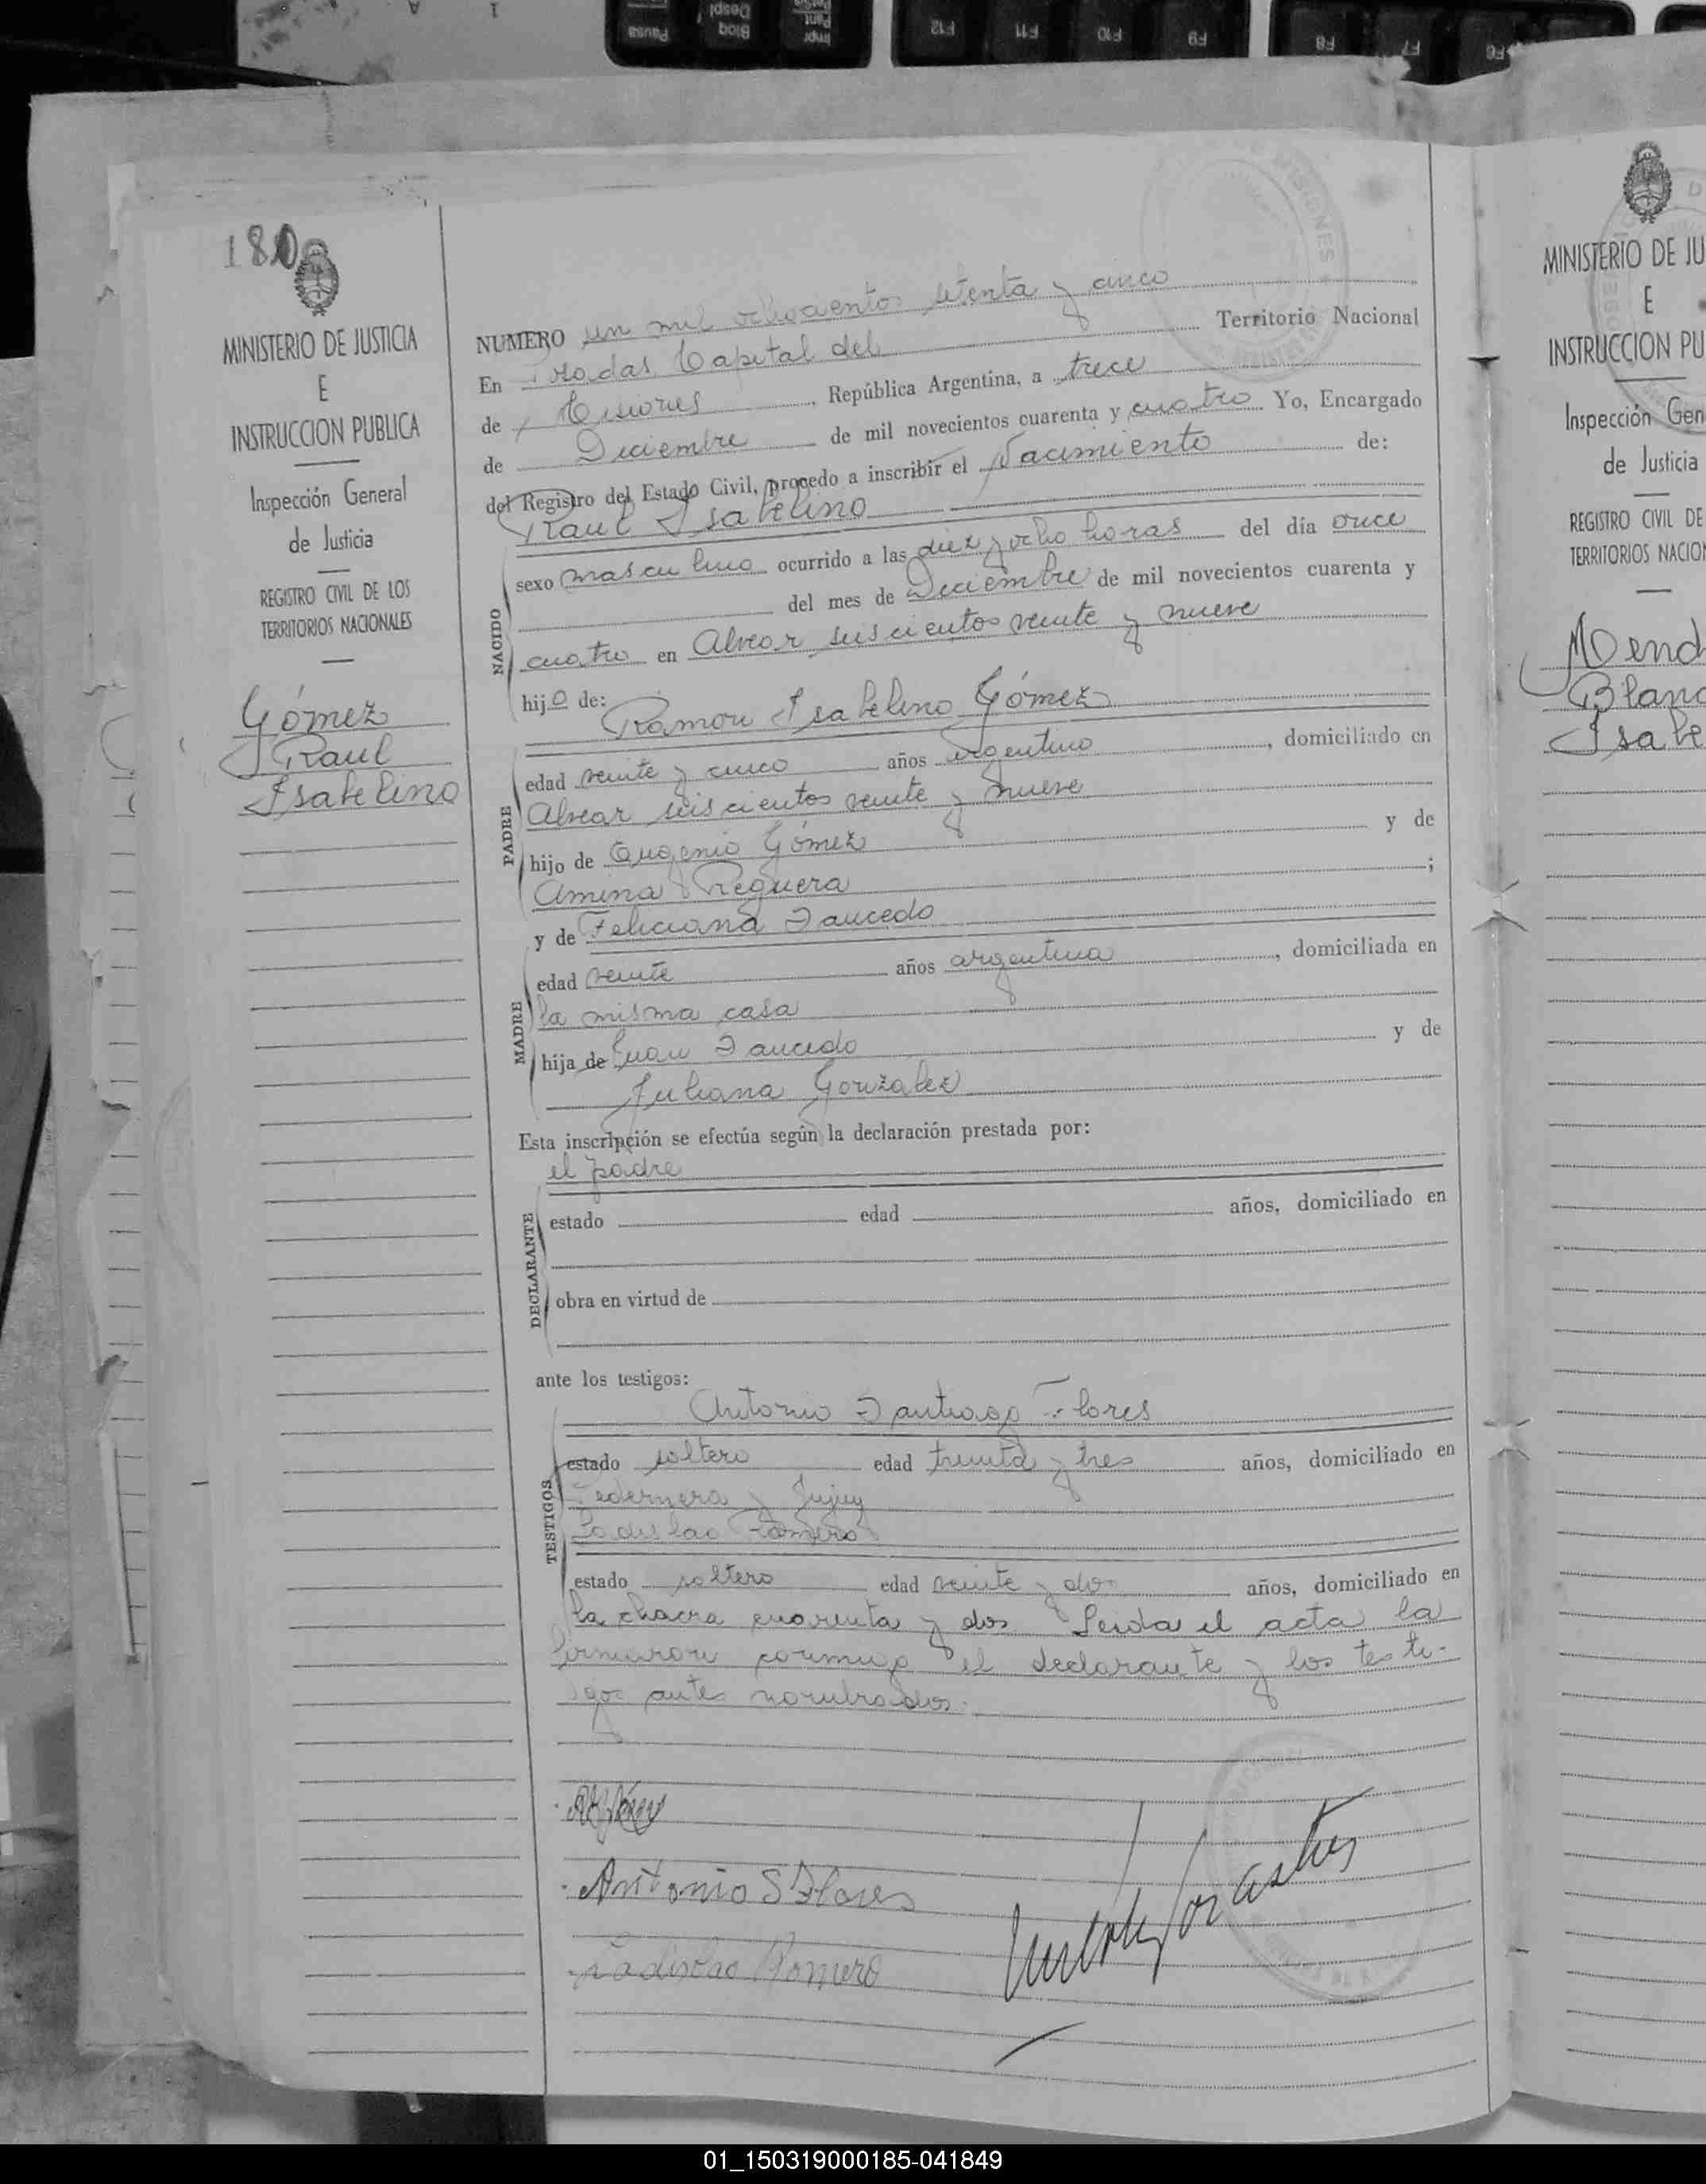 Pausa
Bloq Despl
Impr Pant
F12
F11
F10
F9
F8
F7
F6
180
MINISTERIO DE JUSTICIA
E
INSTRUCCION PUBLICA
Inspección General
de Justicia
REGISTRO CIVIL DE LOS
TERRITORIOS NACIONALES
Gómez
Raul
Isabelino
NUMERO un mil ochocientos setenta y cinco
En Posadas Capital del Territorio Nacional
de Misiones, República Argentina, a trece
de Diciembre de mil novecientos cuarenta y cuatro Yo, Encargado
del Registro del Estado Civil, procedo a inscribir el Nacimiento de:
Raul Isabelino
NACIDO
sexo masculino ocurrido a las diez y ocho horas del día once
del mes de Diciembre de mil novecientos cuarenta y
cuatro en Alvear seiscientos veinte y nueve
hijo de:
Ramon Isabelino Gómez
PADRE
edad veinte y cinco años argentino, domiciliado en
Alvear seiscientos veinte y nueve
hijo de Eugenio Gómez y de
Amina Reguera;
y de Feliciana Saucedo
MADRE
edad veinte años argentina, domiciliada en
la misma casa
hija de Juan Saucedo y de
Juliana Gonzalez
Esta inscripción se efectúa según la declaración prestada por:
el padre
DECLARANTE
estado edad años, domiciliado en
obra en virtud de
ante los testigos:
Antonio Santiago Flores
TESTIGOS
estado soltero edad treinta y tres años, domiciliado en
Pedernera y Jujuy
Ladislao Romero
estado soltero edad veinte y dos años, domiciliado en
la chacra cuarenta y dos Leida el acta la
firmaron conmigo el declarante y los testi-
gos antes nombrados.
Antonio S Flores
Ladislao Romero
MINISTERIO DE JU
E
INSTRUCCION PU
Inspección Gen
de Justicia
REGISTRO CIVIL DE
TERRITORIOS NACION
Mend
Blanc
Isabe
01_150319000185-041849